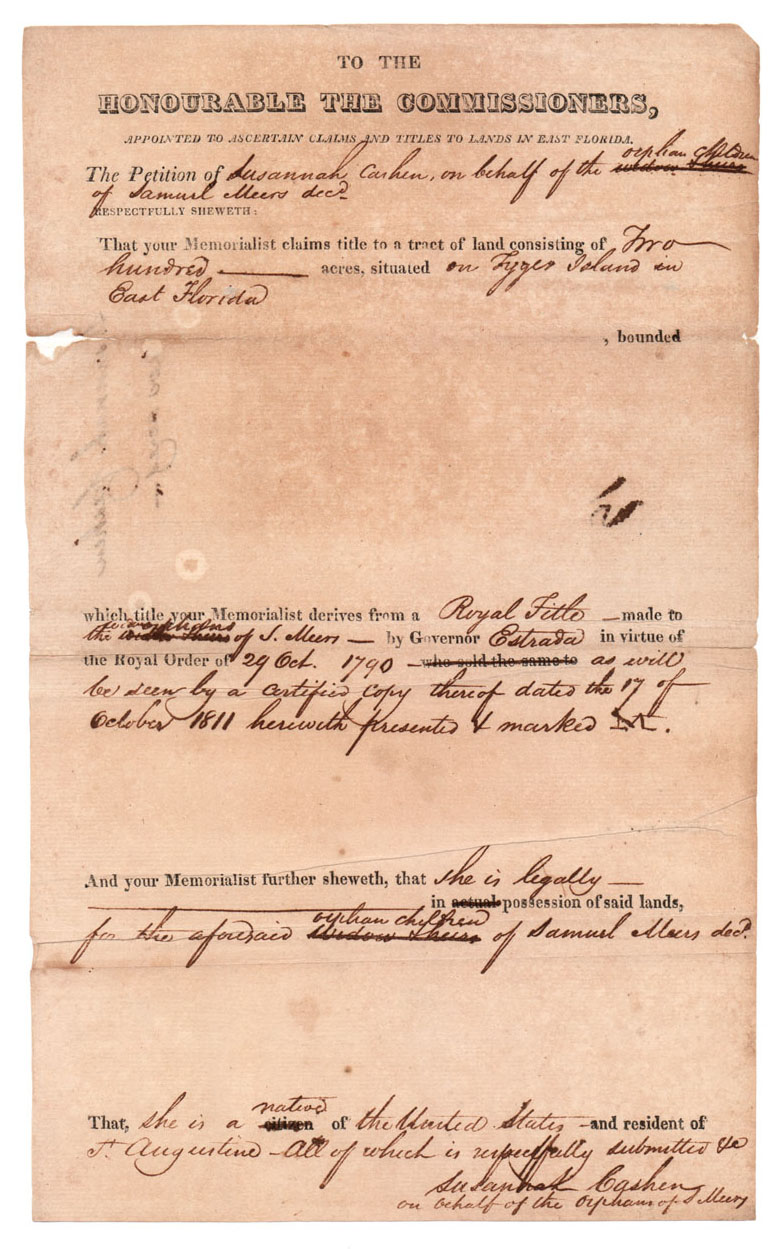 TO THE
HONOURABLE THE COMMISSIONERS,
APPOINTED TO ASCERTAIN CLAIMS AND TITLES TO LANDS IN EAST FLORIDA.
orphan children
The Petition of Susannah Cashen, on behalf of the widow & heirs
of Samuel Meers decd.
RESPECTFULLY SHEWETH:
That your Memorialist claims title to a tract of land consisting of Two
hundred acres, situated on Tyger Island in
East Florida
, bounded
which title your Memorialist derives from a Royal Title made to
orphans
the widow & heirs of S. Meers — by Governor Estrada in virtue of
the Royal Order of 29 Oct. 1790 – who sold the same to as will
be seen by a certified copy thereof dated the 17 of
October 1811 herewith presented & marked
And your Memorialist further sheweth, that she is legally —
in actual possession of said lands,
orphan children
for the aforesaid widow & heirs of Samuel Meers decd.
native
That, she is a citizen of the United States and resident of
St. Augustine – All of which is respectfully submitted &c
Susannah Cashen
on behalf of the Orphans of S Meers